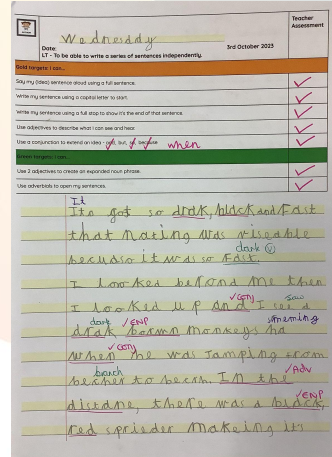 Teacher Assessment
Wednesday
Date: 3rd October 2023
LT - To be able to write a series of sentences independently.
Gold targets: I can...
Say my (idea) sentence aloud using a full sentence.
Write my sentence using a capital letter to start.
Write my sentence using a full stop to show it's the end of that sentence.
Use adjectives to describe what I can see and hear
Use a conjunction to extend an idea - and, but, so, because when
Green targets: I can...
Use 2 adjectives to create an expanded noun phrase.
Use adverbials to open my sentences.
It
Its got so drak, black and Fast
that nating was viseable
becuaso it was so Fast.
dark
I looked befond me then
✓conj saw
I looked up and I see a
dark ✓ENP
drak bormn monkeys ha
✓conj
when he was Jamping from
branch ✓Adv
to becrh. In the
✓ENP
distane, there was a black,
red sprieder makeing its